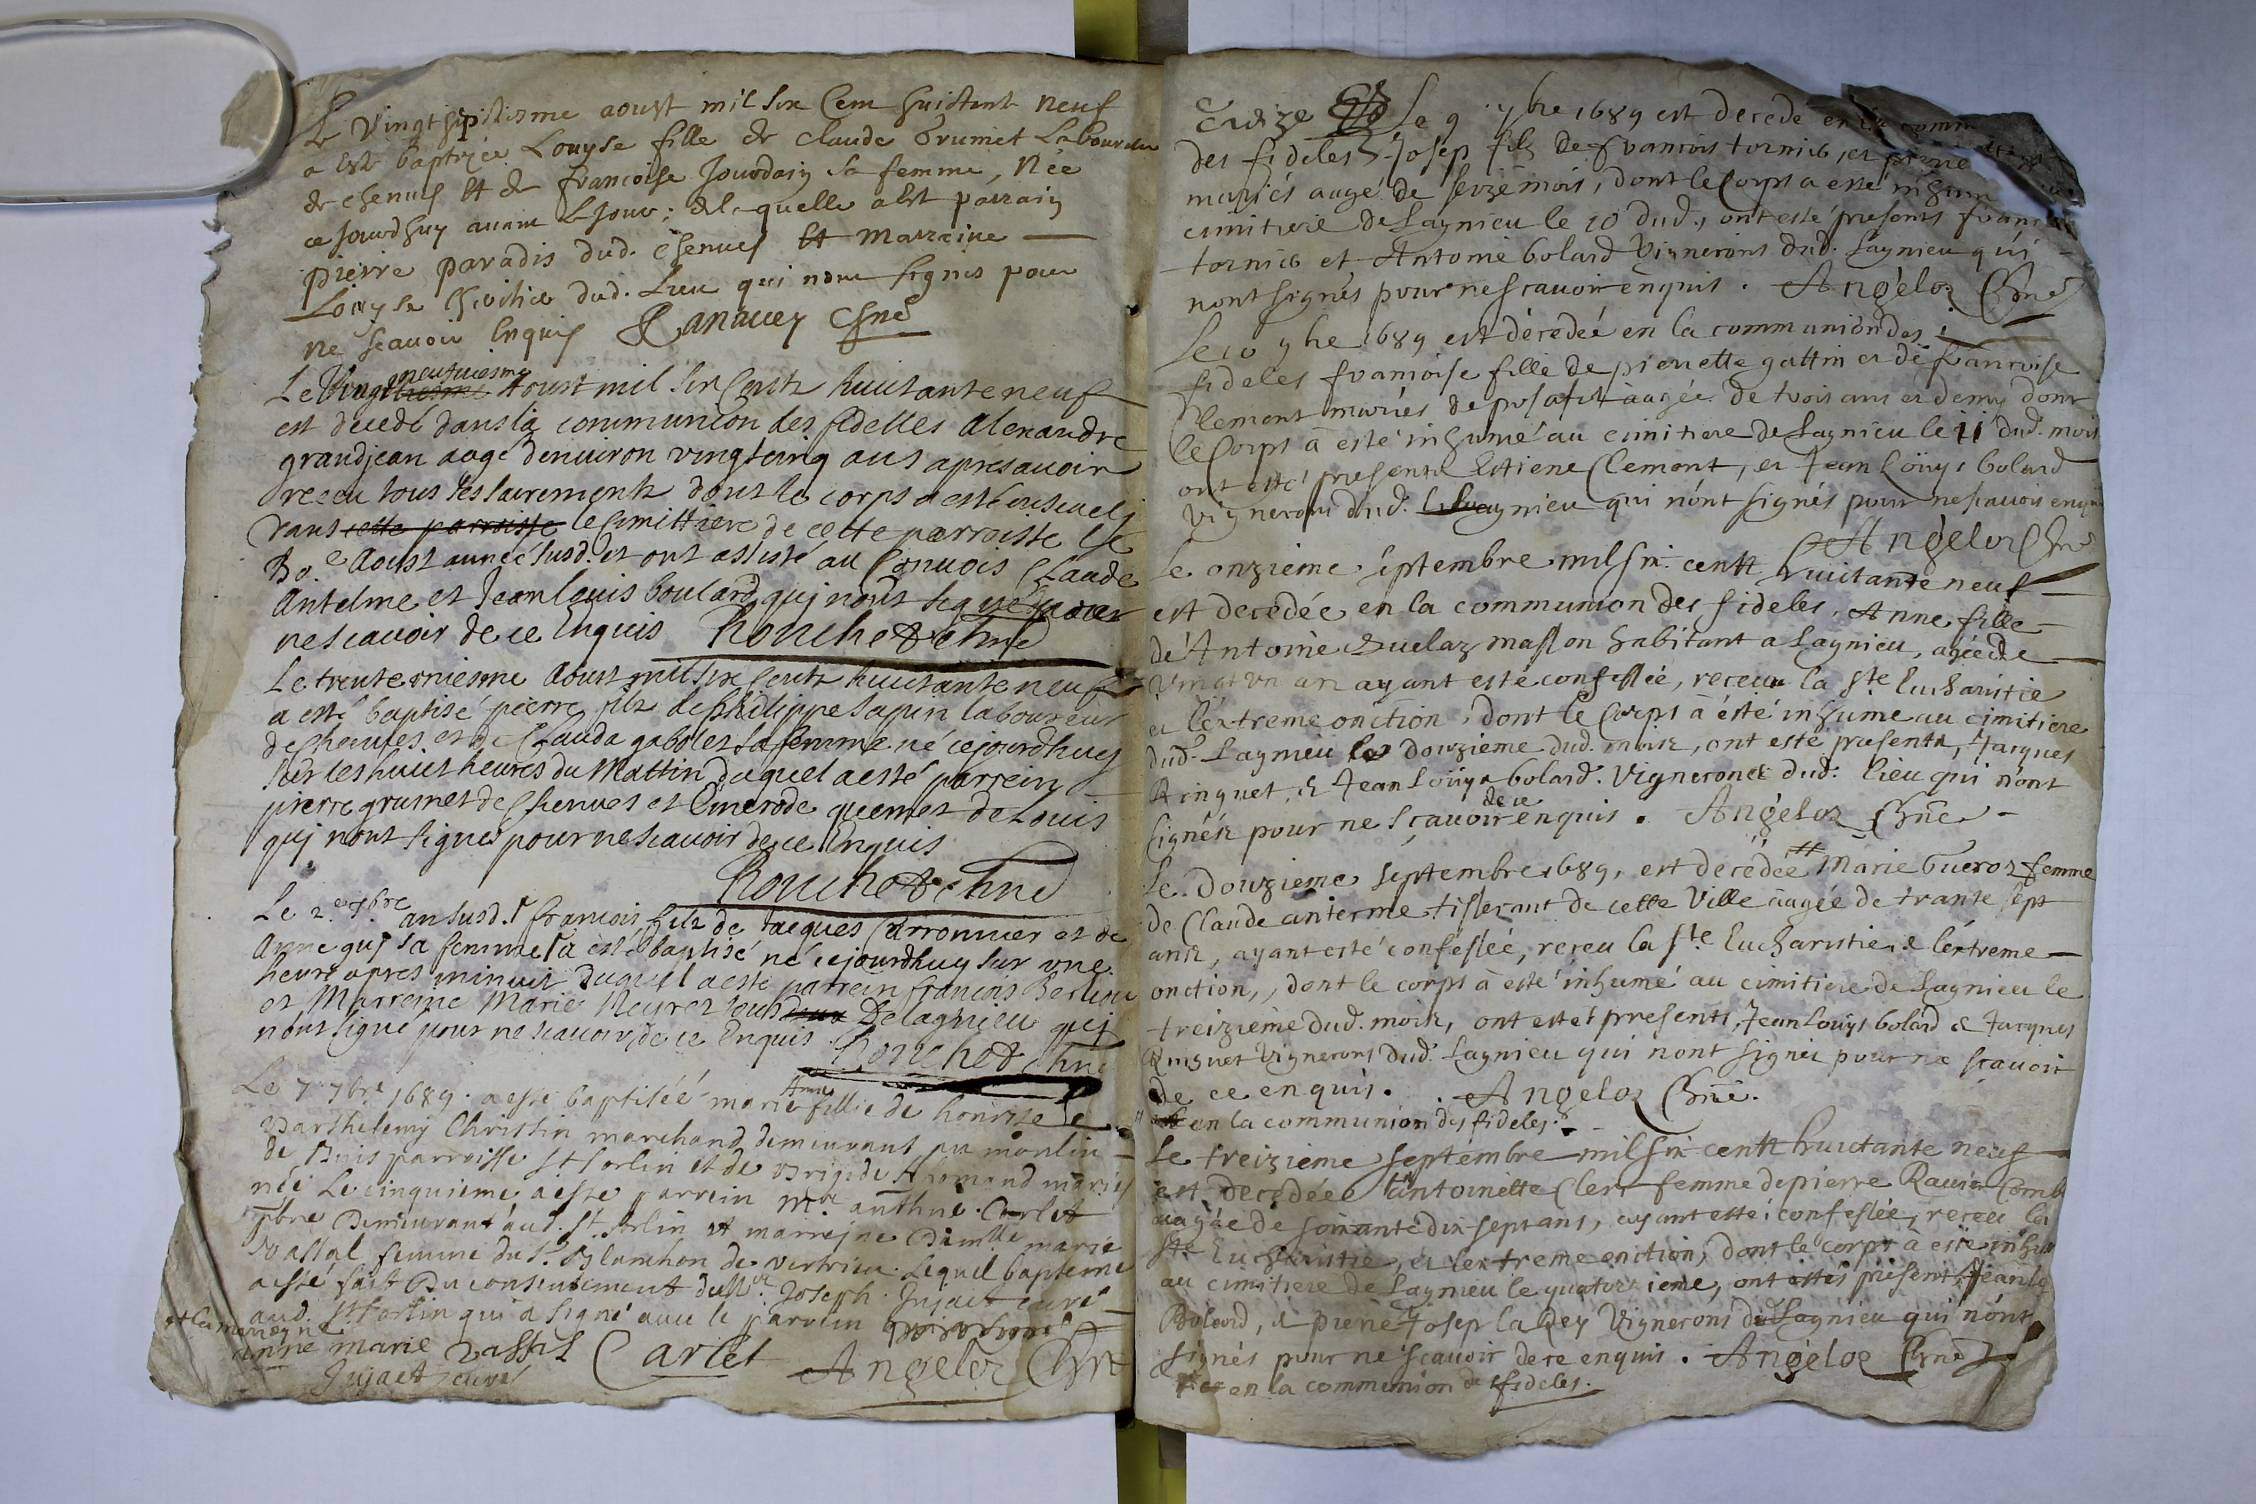 Le Vingt septiesme aoust mil six Cent huictante neuf
a este baptizée Louyse fille de claude Brumet Laboureur
de chenues et de francoise Jourdain sa femme, Née
ce jourdhuy avant le jour; de laquelle a est parrain
pierre paradis dud. chenues et Marraine
Louyse dud. Lieu qui nont signés pour
ne scavoir Enquis Canavey Chne
Le Vingt neufuiesme Aoust mil six Cents huictante neuf
est decedé dans la communion des fidelles Alexandre
grandjean aagé denuiron vingtcinq ans apres avoir
receu tous les sacrements dont le corps a esté enseueli
dans cette parroisse le Cimittiere de cette parroisse le
30.e Aoust année susd. et ont assisté au Convois Claude
Antelme et Jean louis boulard qui n'ont signé pour
ne scavoir de ce Enquis Rouchet chne
Le trente uniesme Aoust mil six Cents huictante neuf
a esté baptisé pierre fils de philippe sapin laboureur
de Chenues et de Clauda gabolet sa femme né cejourdhuy
sur les huict heures du Mattin duquel a esté parrein
pierre grumet de Chenues et Eimerode quemet de Louis
qui n'ont signés pour ne scavoir de ce Enquis
Rouchet chne
Le 2.e 7.bre an susd. francois fils de Jacques Carronnier et de
Anne guy sa femme a esté baptisé né cejourdhuy sur une
heure apres minuit duquel a esté parrein francois Berliou
et Marreine Marie Neyret tous deux De lagnieu qui
n'ont signé pour ne scavoir de ce Enquis
Rouchet chne
Le 7 7bre 1689. a esté baptisée marie Anne fillie de honneste
Barthelemy Christin marchand demeurant au moulin
de Buis parroisse St Sorlin et de Brigide Armand mariés
née Le cinquieme a esté parrein Mre anthne. Carlet
pbre Demeurant aud. St. Sorlin et marreyne Damlle marie
Vassal femme du Sr. Blanchon de vertrieu. Lequel bapteme
a esté fait Du consentement de Mre Joseph Jujact curé
aud. St Sorlin qui a signé avec le parrein
et La marreyne
anne marie Vassal Carlet Angeloz Chne
Jujact curé
Treize Le 9 7bre 1689 est decede en la comm
des fideles Josep fils de francois tornier, et pierre
mariés augé de seize mois, dont le Corps a esté inhumé
cimitiere de Lagnieu le 10 dud., ont esté presents francois
tornier et Antoine bolard Vignerons dud. Lagnieu qui
nont signés pour ne scavoir enquis. Angeloz Chne
Le 10 7bre 1689 est décedée en la communion des
fideles francoise fille de pierrette gattin et de francoise
Clement mariés de posafol aagée de trois ans et demy dont
le Corps à esté inhumé au cimitiere de Lagnieu le 11 dud. mois
ont esté presents Estiene Clement, et Jean Loüys bolard
vignerons dud. Lagnieu qui n'ont signés pour ne scavoir enquis
Angeloz Chne
Le onzieme septembre mil six centz huictante neuf
est decedée en la communion des fideles, Anne fille
de Antoine Buelaz masson habitant a Lagnieu, agée de
vingt un an ayant esté confessée, receu la ste Eucharistie
et l'extreme onction, dont le Corps à été inhumé au cimitiere
dud. Lagnieu le douzieme dud. mois, ont esté presents, Jacques
Rinquet, & Jean Loüys bolard. Vignerons dud. lieu qui n'ont
signés pour ne sçavoir de ce enquis. Angeloz Chne
Le Douzieme septembre 1689, est decédée # Marie Gueroz femme
de Claude anterme tisserant de cette Ville aagée de trante sept
ans, ayant esté confessée, receu la ste Eucharistie & l'extreme
onction,, dont le corps à esté inhumé au cimitiere de Lagnieu le
treizieme dud. mois, ont esté presents, Jean Loüys bolard & Jacques
Rinquet Vignerons dud. Lagnieu qui n'ont signés pour ne scavoir
de ce enquis. Angeloz Chne.
# en la communion des fideles.
Le treizieme septembre mil six centz huictante neuf
est decedée Antoinette Clerc femme de pierre Ravier Comb
aagée de soixante dix sept ans, ayant esté confessée, receu la
ste Eucharistie, et l'extreme onction, dont le corps à esté inhu
au cimitiere de Lagnieu le quatorzieme, ont estés présent, Jean Lo
Bolard, & pierre Josep la Rey Vignerons de Lagnieu qui n'ont
signés pour ne scavoir de ce enquis. Angeloz Chne
en la communion des fideles.